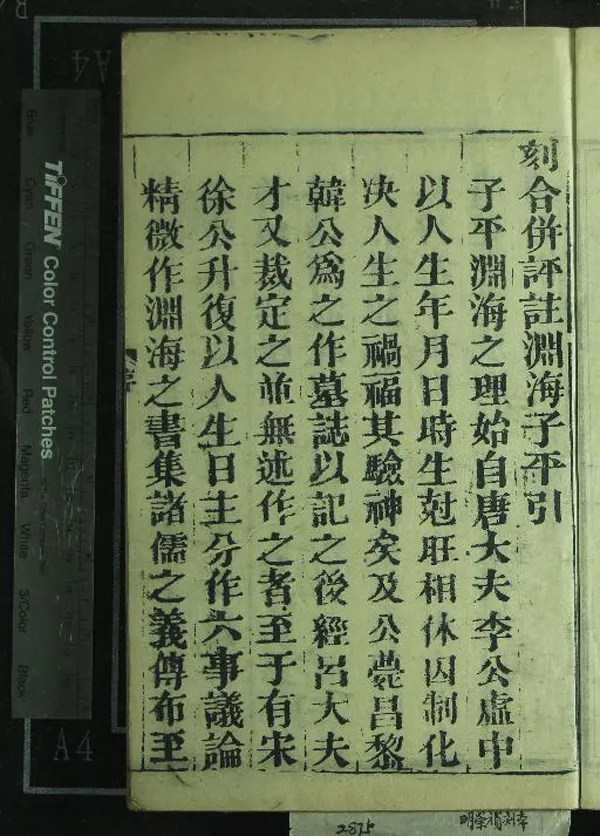 刻合併評註淵海子平引
子平淵海之理始自唐大夫李公虛中
以人生年月日時生尅旺相休囚制化
决人生之禍福其驗神矣及公薨昌黎
韓公爲之作墓誌以記之後經呂大夫
才又裁定之並無述作之者至于有宋
徐公升復以人生日主分作六事議論
精微作淵海之書集諸儒之義傳布至
序
TIFFEN Color Control Patches
Blue Cyan Green Yellow Red Magenta White 3/Color Black
A4
A4
2875